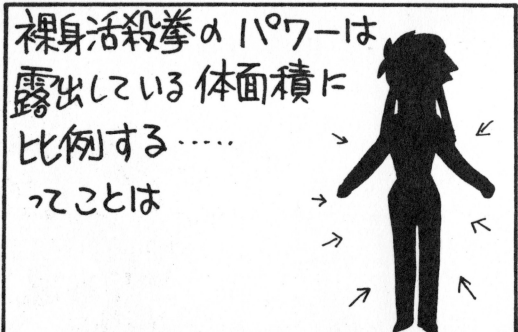 裸身活殺拳のパワーは
露出している体面積に
比例する……
ってことは